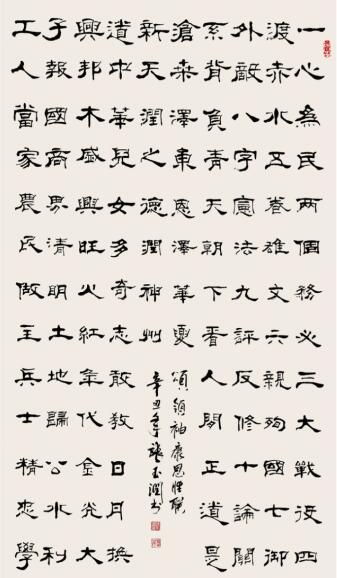 一心為民兩個務必三大戰役四
渡赤水五卷雄文六親殉國七御
外敵八字憲法九評反修十論關
系背負青天朝下看人間正道是
滄桑澤東恩澤華夏
工人當家農民做主兵士精忠學
子報國商界清明土地歸公水利
興邦木盛興旺火紅年代金光大
道中華兒女多奇志敢教日月換
新天潤之德潤神州
頌領袖
辛丑年